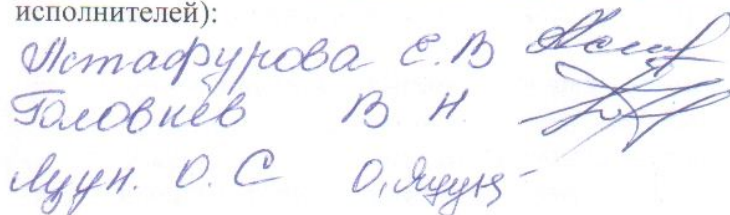 исполнителей):
Астафурова Е.В
Головнев В Н.
Яцун. О. С О,Яцун